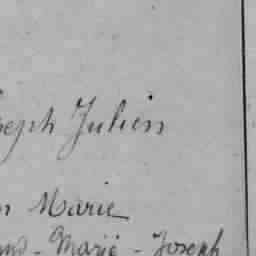 Joseph Julien
Marie
Marie - Joseph